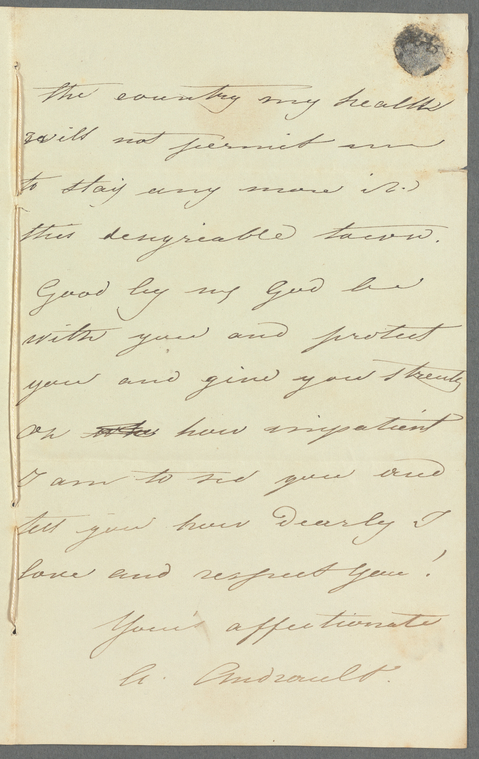 the country my health
will not permit me
to stay any more in
this desagreable town.
Good by my God be
with you and protect
you and give you strength
Oh how impatient
I am to see you and
tell you how dearly I
love and respect you!
Your affectionate
A. Andrault.